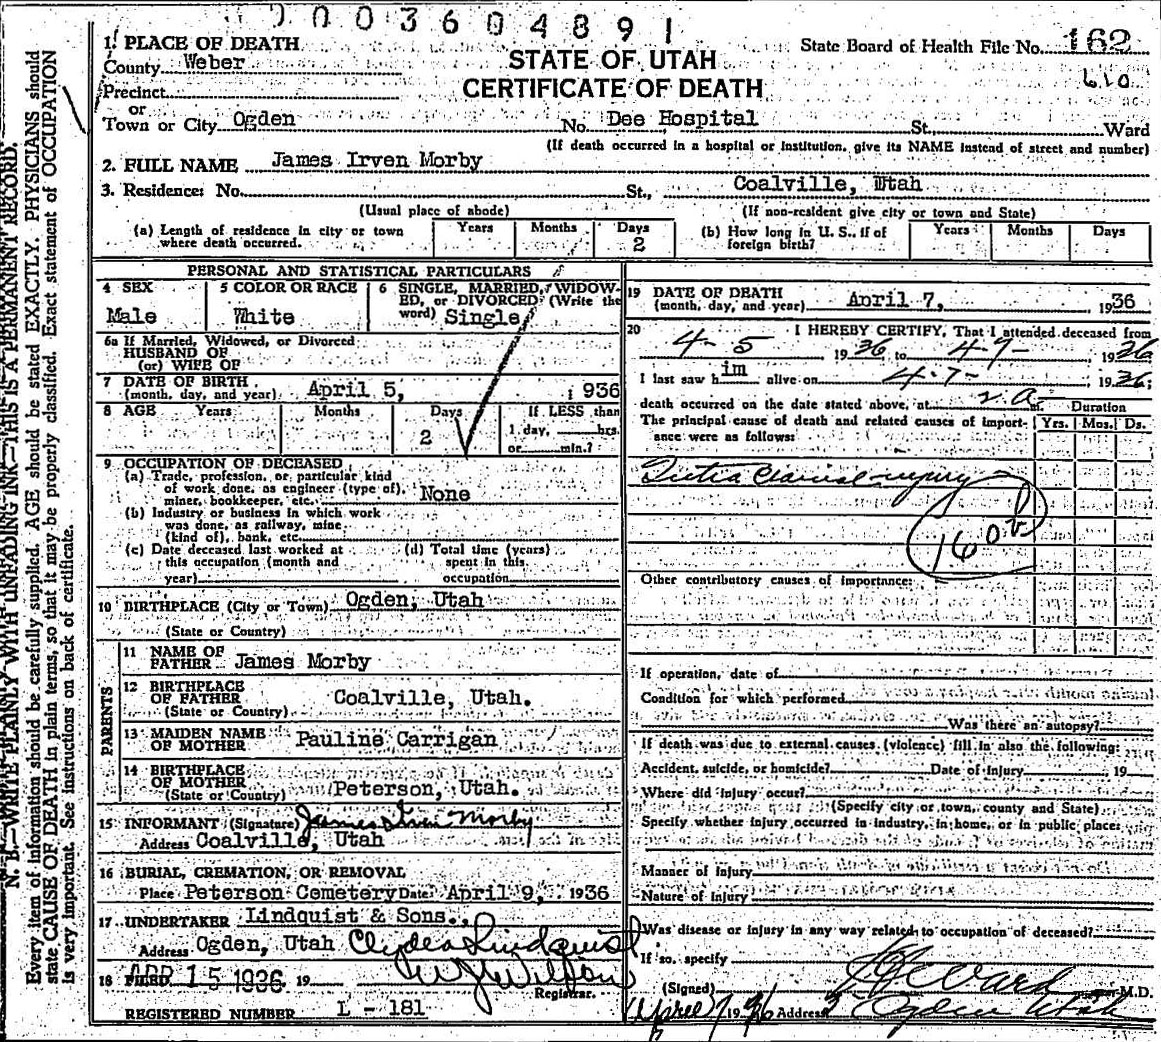 0003604891
1. PLACE OF DEATH
County Weber
Precinct
or
Town or City Ogden
STATE OF UTAH
CERTIFICATE OF DEATH
State Board of Health File No. 162
610
No. Dee Hospital St. Ward
(If death occurred in a hospital or institution, give its NAME instead of street and number)
2. FULL NAME James Irven Morby
3. Residence: No. St., Coalville, Utah
(Usual place of abode) (If non-resident give city or town and State)
(a) Length of residence in city or town where death occurred. Years Months Days 2
(b) How long in U. S., if of foreign birth? Years Months Days
PERSONAL AND STATISTICAL PARTICULARS
4 SEX Male
5 COLOR OR RACE White
6 SINGLE, MARRIED, WIDOWED, or DIVORCED (Write the word) Single
6a If Married, Widowed, or Divorced
HUSBAND OF
(or) WIFE OF
7 DATE OF BIRTH
(month, day, and year) April 5, 1936
8 AGE Years Months Days 2 If LESS than
1 day, hrs.
or min.?
9 OCCUPATION OF DECEASED
(a) Trade, profession, or particular kind
of work done, as engineer (type of),
miner, bookkeeper, etc. None
(b) Industry or business in which work
was done, as railway, mine
(kind of), bank, etc.
(c) Date deceased last worked at
this occupation (month and
year)
(d) Total time (years)
spent in this
occupation
10 BIRTHPLACE (City or Town) Ogden, Utah
(State or Country)
PARENTS
11 NAME OF
FATHER James Morby
12 BIRTHPLACE
OF FATHER Coalville, Utah.
(State or Country)
13 MAIDEN NAME
OF MOTHER Pauline Carrigan
14 BIRTHPLACE
OF MOTHER
(State or Country) Peterson, Utah.
15 INFORMANT (Signature) James Irven Morby
Address Coalville, Utah
16 BURIAL, CREMATION, OR REMOVAL
Place Peterson Cemetery Date April 9, 1936
17 UNDERTAKER Lindquist & Sons.,
Address Ogden, Utah Clyde Lindquist
18 FILED APR 15 1936 19
Registrar.
REGISTERED NUMBER L - 181
19 DATE OF DEATH
(month, day, and year) April 7, 1936
20 I HEREBY CERTIFY, That I attended deceased from
4-5 1936 to 4-7- 1936
I last saw him alive on 4-7- 1936;
death occurred on the date stated above, at 2 a. m.
Duration
The principal cause of death and related causes of importance were as follows: Yrs. Mos. Ds.
injury
160b
Other contributory causes of importance:
If operation, date of
Condition for which performed
Was there an autopsy?
If death was due to external causes (violence) fill in also the following:
Accident, suicide, or homicide? Date of injury 19
Where did injury occur?
(Specify city or town, county and State)
Specify whether injury occurred in industry, in home, or in public place:
Manner of Injury
Nature of Injury
Was disease or injury in any way related to occupation of deceased?
If so, specify
(Signed) Ward M.D.
April 7 1936 Address Ogden Utah
N. B.—WRITE PLAINLY WITH UNFADING INK—THIS IS A PERMANENT RECORD.
Every item of information should be carefully supplied. AGE should be stated EXACTLY. PHYSICIANS should
state CAUSE OF DEATH in plain terms, so that it may be properly classified. Exact statement of OCCUPATION
is very important. See instructions on back of certificate.